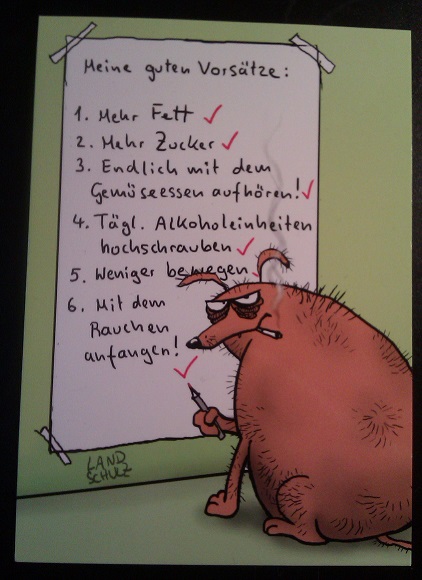 Meine guten Vorsätze:
1. Mehr Fett ✓
2. Mehr Zucker ✓
3. Endlich mit dem
Gemüseessen aufhören! ✓
4. Tägl. Alkoholeinheiten
hochschrauben ✓
5. Weniger bewegen ✓
6. Mit dem
Rauchen
anfangen! ✓
LAND
SCHULZ